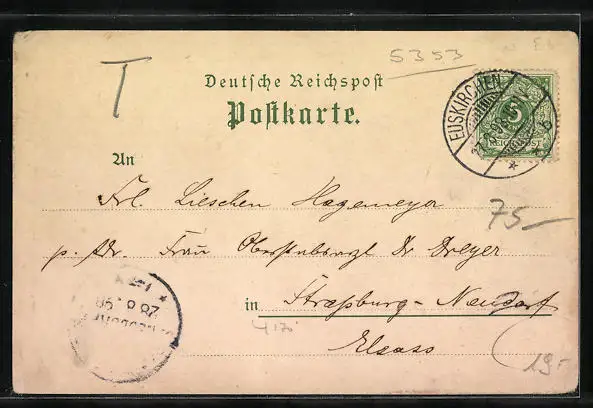 T
5353
Deutsche Reichspost
Postkarte.
EUSKIRCHEN
5
REICHSPOST
* * b
An
Frl. Lieschen Hagemeyer
75
p. Adr. Frau Oberstabsarzt Dr Dreyer
in Straßburg-Neudorf
Elsass
28 8 98
19.-